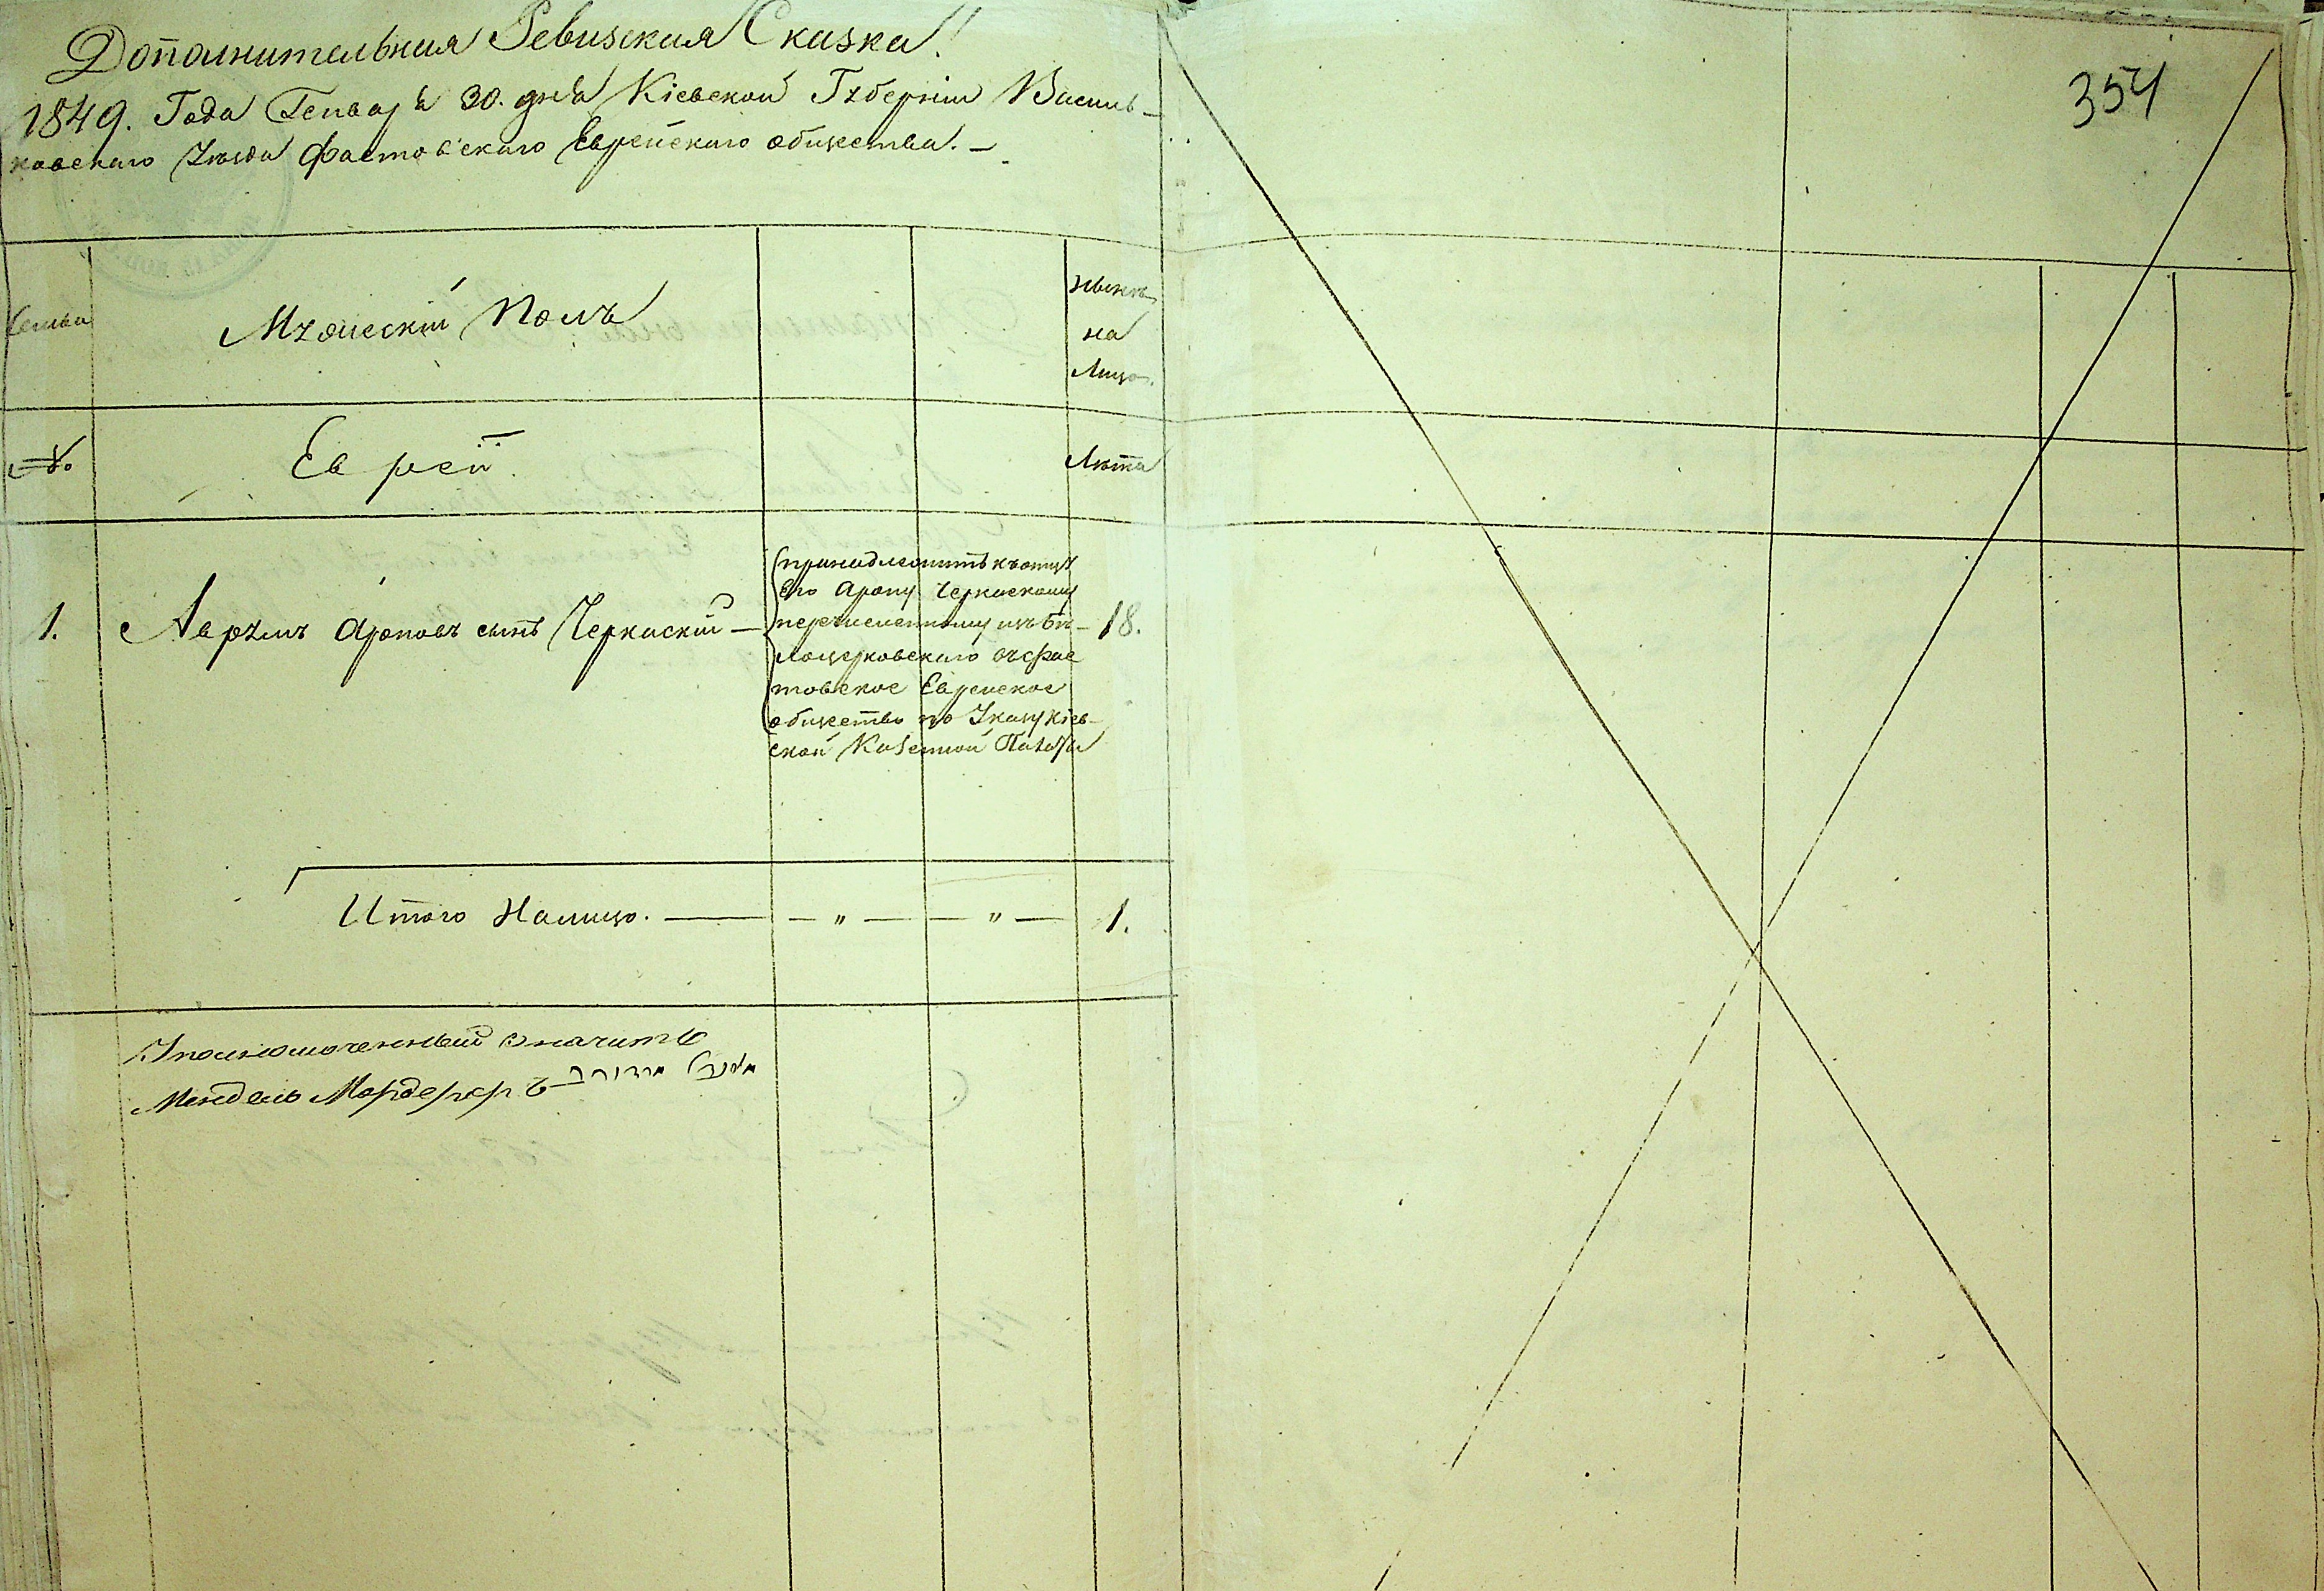 Дополнительная Ревизская Сказка!
354
1849. Года Генваря 30. дня Кіевской Губерніи Василь-
ковскаго Уѣзда Фастовскаго Еврейскаго общества. —
Семьи
Мужескій Полъ
Нынѣ
на
Лицо.
№
Евреи
Лѣта
1. Аврумъ Ароновъ сынъ Черкаскій —
принадлежитъ къ отцу
Его Арону Черкаскому
перечисленному изъ Бѣ-
лоцерковскаго въ Фас
товское Еврейское
общество по Указу Кіев-
ской Казенной Палаты
— 18.
Итого Налицо. — — " — — " — 1.
Уполномоченный значитъ
Мендель